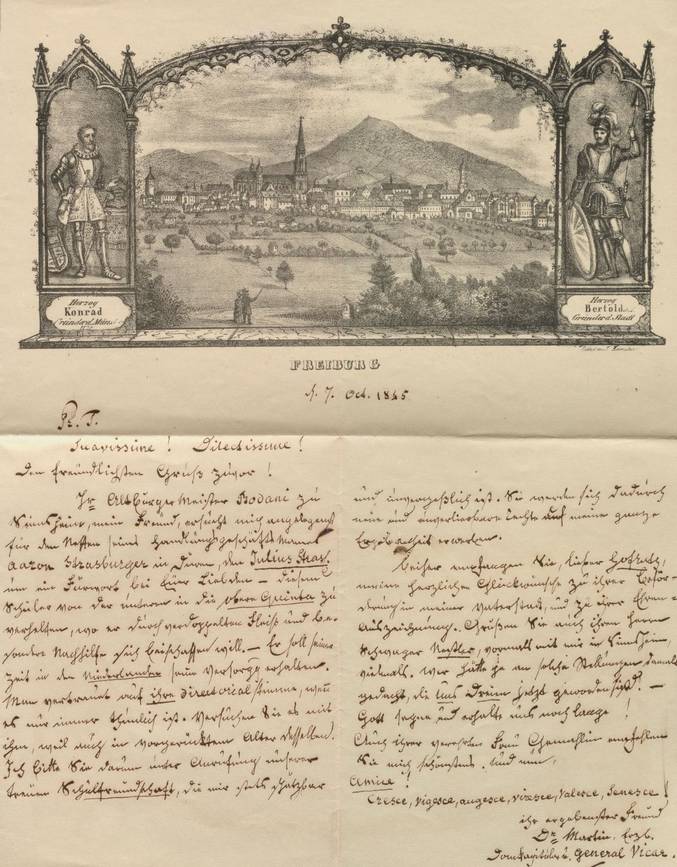 Herzog
Konrad
Gründer d. Müns
Herzog
Bertold
Gründer d. Stadt
FREIBURG
d. 7. Oct. 1845
P. T.
Suavissime! Dilectissime!
Den freundlichsten Gruß zuvor!
Hr. Altbürgermeister Bodani zu
Sinsheim, mein Freund, ersucht mich angelegenst
für den Neffen seines Handlungsgeschäfts
Aaron Strasburger in Düren, den Julius Stras.
um ein Fürwort bei Euer Liebden – diesem
Schüler von der unteren in die obere Quinta zu
verhelfen, wo er durch verdoppelten Fleiß und be-
sondere Nachhilfe sich beischaffen will. – Er soll seiner
Zeit in den Niederlanden seine Versorgg erhalten.
Man vertraut auf ihre directorialstimme, wenn
es nur immer thunlich ist. Versuchen Sie es mit
ihm, weil auch in vorgerücktem Alter desselben.
Ich bitte Sie darum unter Anrufung unserer
treuen Schulfreundschaft, die mir stets schätzbar
und unvergeßlich ist. Sie werden sich dadurch
neue und unverlierbare Rechte auf meine ganze
Ergebenheit erwerben.
Beiher empfangen Sie, lieber
meine herzlichen Glückwünsche zu ihrer Beför-
derung in meiner Vaterstadt, und zu ihrer Ehren-
Auszeichnung. Grüßen Sie auch ihren Herrn
Schwager, vormals mit mir in Sinsheim,
vielmals. Wer hätte je an solche Stellungen damals
gedacht, die uns Dreien jetzt geworden sind! –
Gott segne und erhalte uns noch lange!
Auch ihrer verehrten Frau Gemahlin empfehlen
Sie mich schönstens. Und nun,
Amice!
Cresce, vigesce, augesce, viresce, valesce, senesce!
ihr ergebenster Freund
Dr. Martin. Erzb.
Domkapitular, General Vicar.